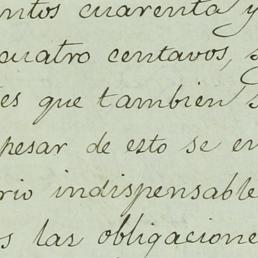 ntos cuarenta y
cuatro centavos, s
es que tambien s
pesar de esto se en
rio indispensable
s las obligacione